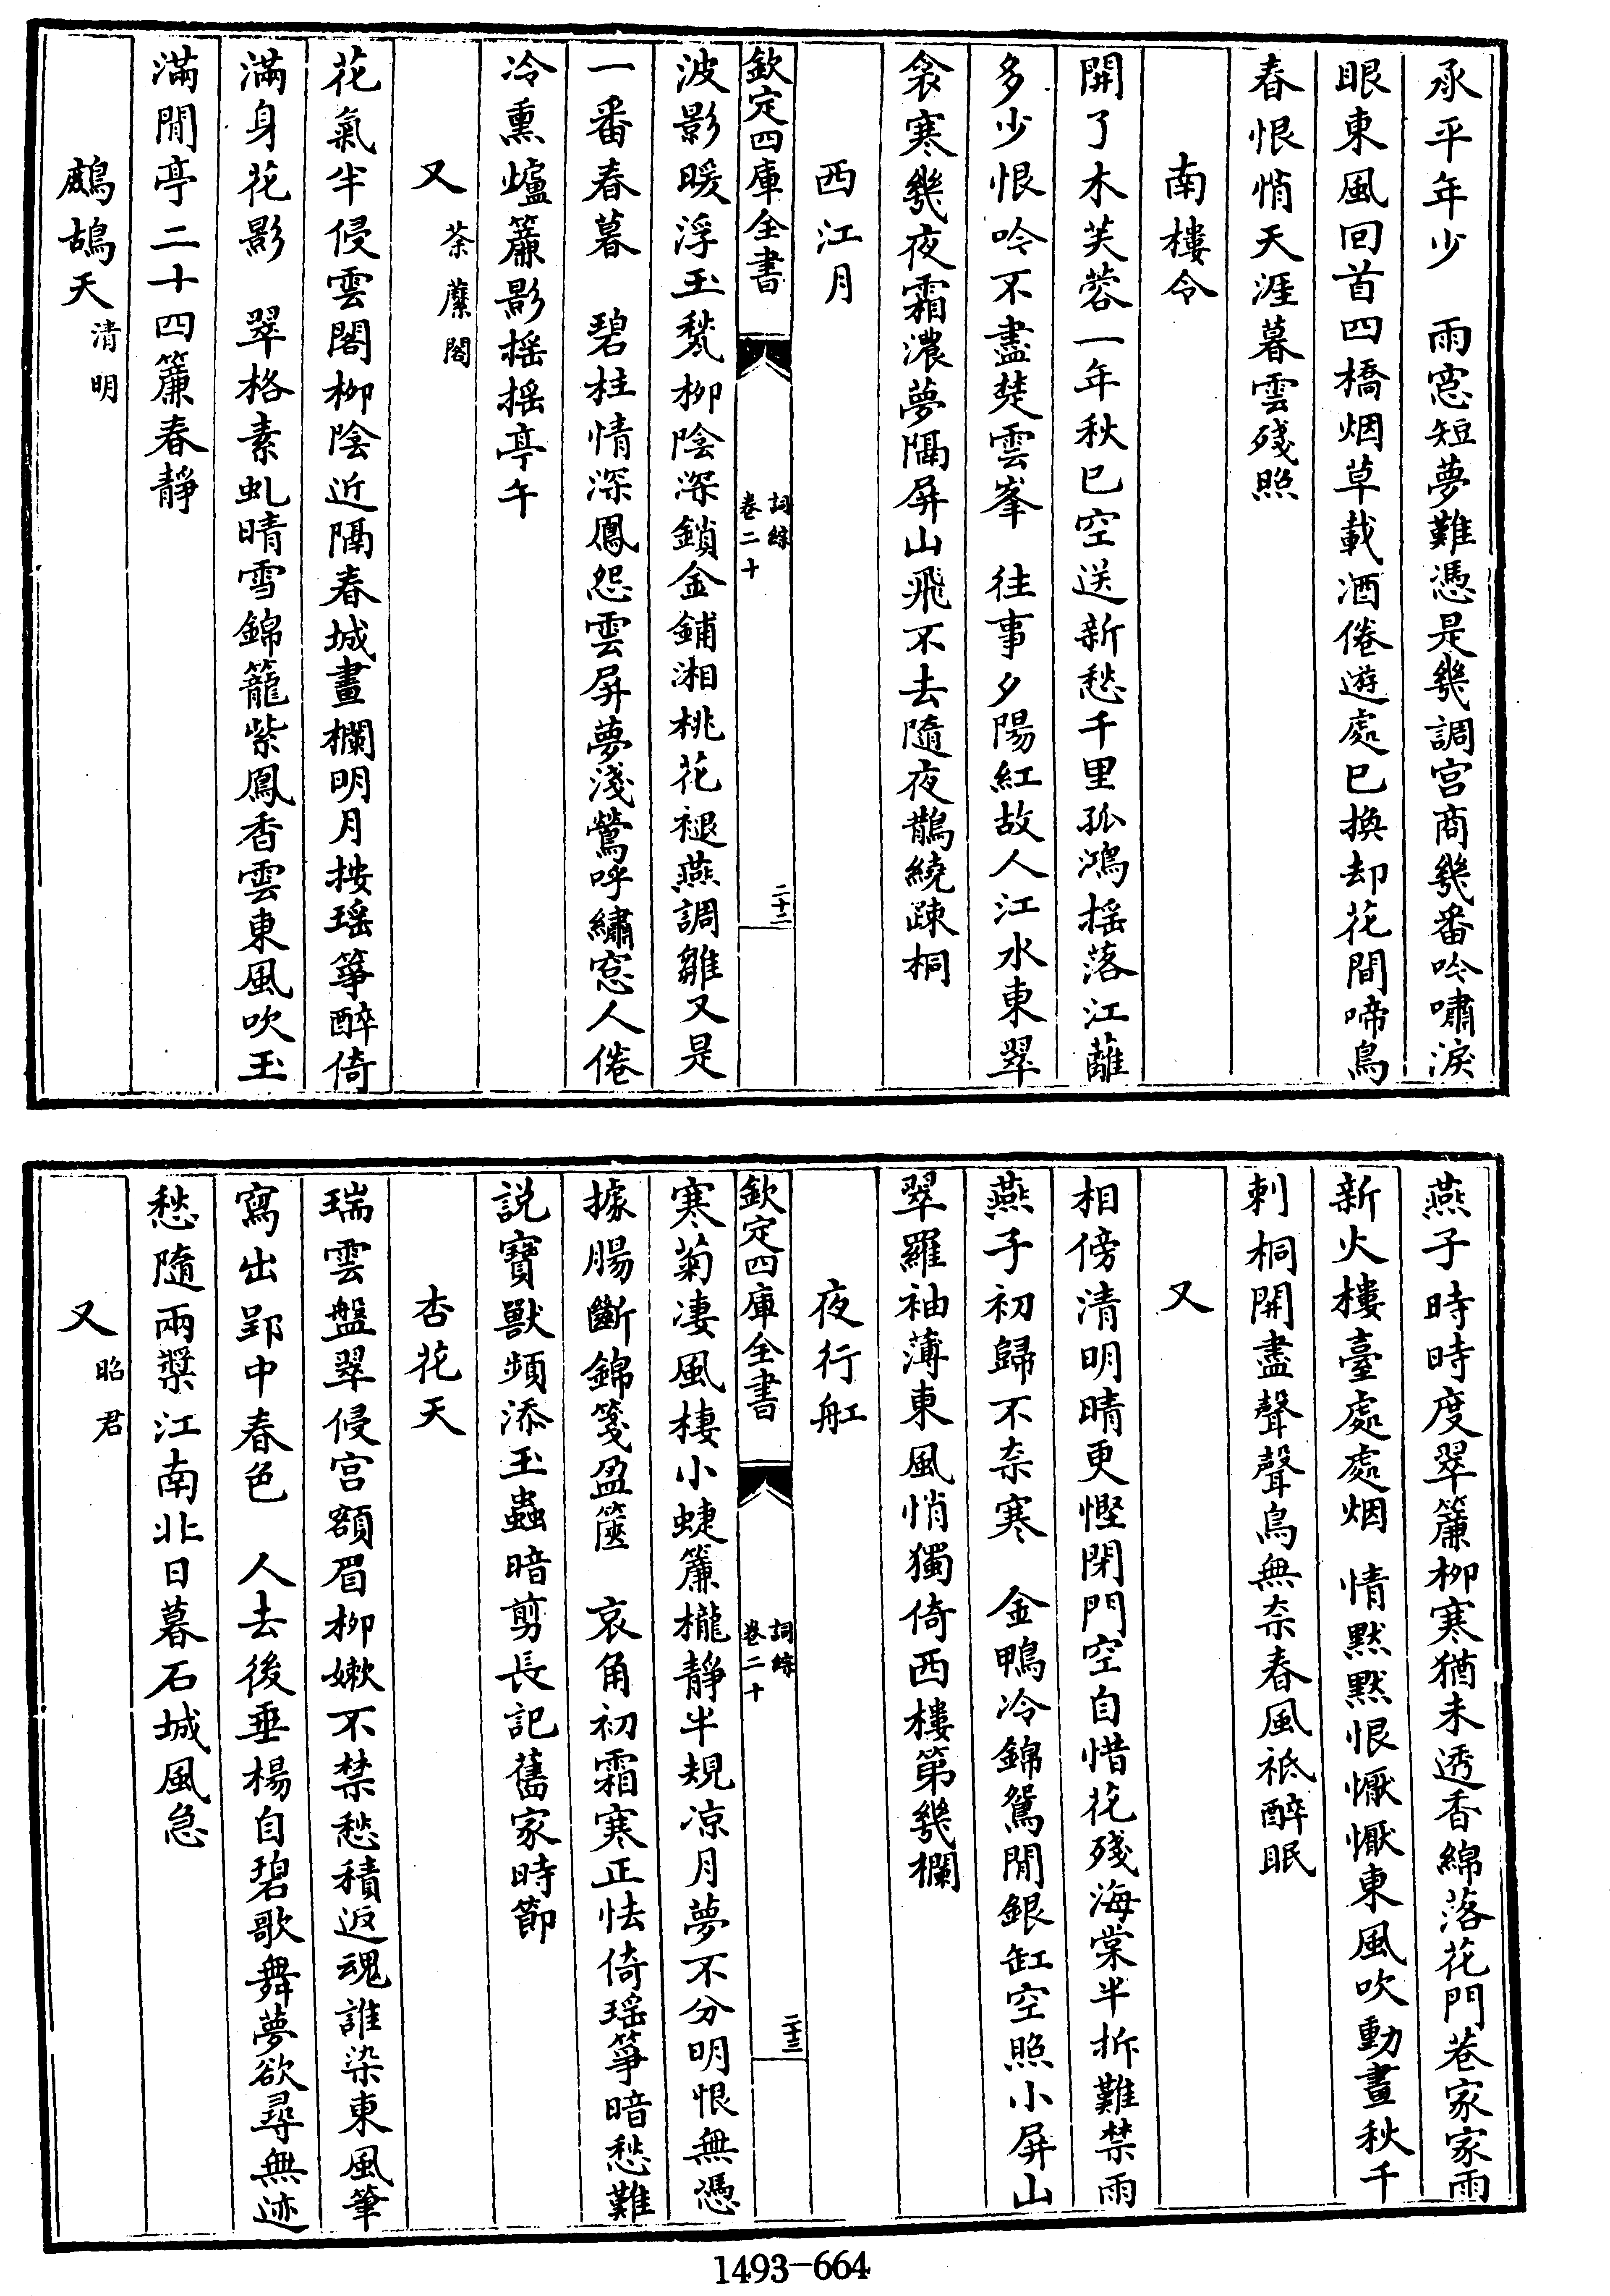 承平年少　雨窓短夢難憑是幾調宫商幾番吟嘯淚
眼東風回首四橋烟草載酒倦遊處已換却花間啼鳥
春恨悄天涯暮雲殘照
南樓令
開了木芙蓉一年秋已空送新愁千里孤鴻揺落江蘺
多少恨吟不盡楚雲峯　往事夕陽紅故人江水東翠
衾寒幾夜霜濃夢隔屏山飛不去隨夜鵲繞疎桐
西江月
欽定四庫全書
詞綜
卷二十
二十二
波影暖浮玉甃柳陰深鎖金鋪湘桃花褪燕調雛又是
一番春暮　碧柱情深鳳怨雲屏夢淺鶯呼繡窓人倦
冷熏爐簾影揺揺亭午
又荼蘼閣
花氣半侵雲閣柳陰近隔春城畫欄明月按瑶箏醉倚
滿身花影　翠格素虬晴雪錦籠紫鳳香雲東風吹玉
滿閒亭二十四簾春靜
鷓鴣天清明
燕子時時度翠簾柳寒猶未透香綿落花門巷家家雨
新火樓臺處處烟　情黙黙恨懨懨東風吹動畫秋千
刺桐開盡聲聲鳥無奈春風祗醉眠
又
相傍清明晴更慳閉門空自惜花殘海棠半拆難禁雨
燕子初歸不奈寒　金鴨冷錦鴛閒銀缸空照小屏山
翠羅袖薄東風悄獨倚西樓第幾欄
夜行舡
欽定四庫全書
詞綜
卷二十
二十三
寒菊凄風棲小蜨簾櫳靜半規凉月夢不分明恨無憑
據腸斷錦箋盈篋　哀角初霜寒正怯倚瑶箏暗愁難
説寶獸頻添玉蟲暗剪長記舊家時節
杏花天
瑞雲盤翠侵宫額眉柳嫰不禁愁積返魂誰染東風筆
寫出郢中春色　人去後垂楊自碧歌舞夢欲尋無迹
愁隨兩槳江南北日暮石城風急
又昭君
1493-664